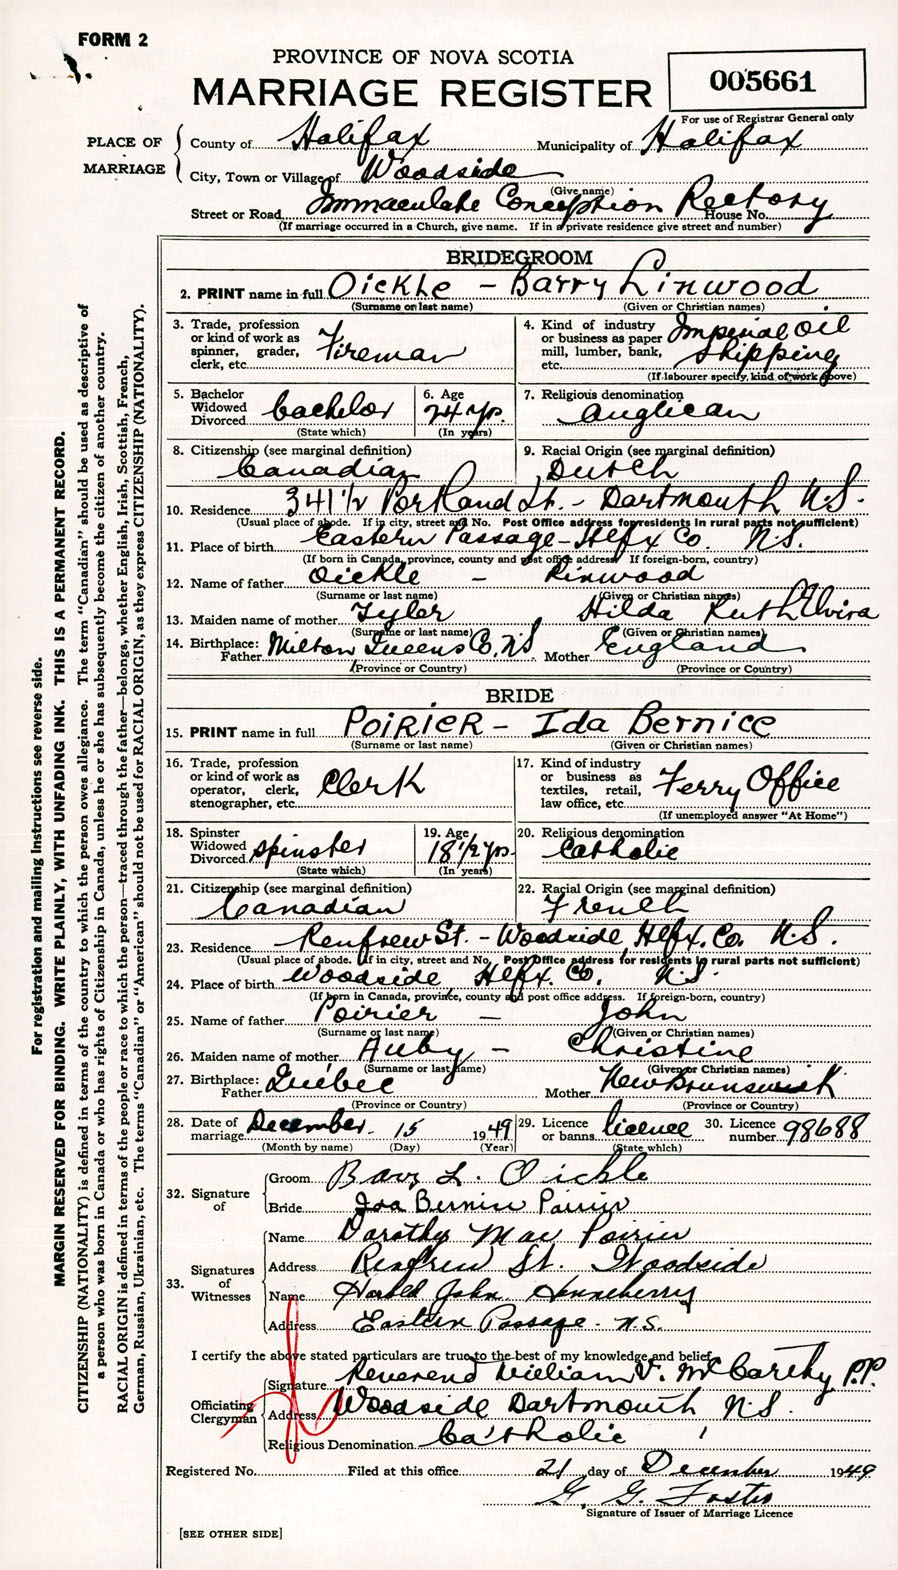 FORM 2
PROVINCE OF NOVA SCOTIA
MARRIAGE REGISTER
005661
For use of Registrar General only
PLACE OF MARRIAGE
County of Halifax Municipality of Halifax
City, Town or Village of Woodside
(Give name)
Street or Road Immaculate Conception Rectory House No.
(If marriage occurred in a Church, give name. If in a private residence give street and number)
BRIDEGROOM
2. PRINT name in full Oickle - Barry Linwood
(Surname or last name) (Given or Christian names)
3. Trade, profession or kind of work as spinner, grader, clerk, etc. Fireman
4. Kind of industry or business as paper mill, lumber, bank, etc. Imperial Oil Shipping
(If labourer specify, kind of work above)
5. Bachelor Widowed Divorced bachelor
(State which)
6. Age 24 yrs.
(In years)
7. Religious denomination Anglican
8. Citizenship (see marginal definition) Canadian
9. Racial Origin (see marginal definition) Dutch
10. Residence 341 1/2 Portland St. - Dartmouth N.S.
(Usual place of abode. If in city, street and No. Post Office address for residents in rural parts not sufficient)
11. Place of birth Eastern Passage - Hlfx Co. N.S.
(If born in Canada, province, county and post office address. If foreign-born, country)
12. Name of father Oickle - Linwood
(Surname or last name) (Given or Christian names)
13. Maiden name of mother Tyler Hilda Ruth Elvira
(Surname or last name) (Given or Christian names)
14. Birthplace: Father Milton Queens Co. NS Mother England
(Province or Country) (Province or Country)
BRIDE
15. PRINT name in full POIRIER - Ida Bernice
(Surname or last name) (Given or Christian names)
16. Trade, profession or kind of work as operator, clerk, stenographer, etc. Clerk
17. Kind of industry or business as textiles, retail, law office, etc. Ferry Office
(If unemployed answer "At Home")
18. Spinster Widowed Divorced spinster
(State which)
19. Age 18 1/2 yrs.
(In years)
20. Religious denomination Catholic
21. Citizenship (see marginal definition) Canadian
22. Racial Origin (see marginal definition) French
23. Residence Renfrew St. - Woodside, Hlfx. Co. N.S.
(Usual place of abode. If in city, street and No. Post Office address for residents in rural parts not sufficient)
24. Place of birth Woodside, Hlfx. Co. N.S.
(If born in Canada, province, county and post office address. If foreign-born, country)
25. Name of father Poirier - John
(Surname or last name) (Given or Christian names)
26. Maiden name of mother Auby - Christine
(Surname or last name) (Given or Christian names)
27. Birthplace: Father Québec Mother New Brunswick
(Province or Country) (Province or Country)
28. Date of marriage December 15 1949
(Month by name) (Day) (Year)
29. Licence or banns licence
(State which)
30. Licence number 98688
32. Signature of
Groom Barry L. Oickle
Bride Ida Bernice Poirier
33. Signatures of Witnesses
Name Dorothy Mae Poirier
Address Renfrew St. Woodside
Name Harold John Henneberry
Address Eastern Passage - N.S.
I certify the above stated particulars are true to the best of my knowledge and belief.
Officiating Clergyman
Signature Reverend William V. McCarthy P.P.
Address Woodside Dartmouth N.S.
Religious Denomination Catholic
Registered No. Filed at this office 21 day of December 1949
G. G. Foster
Signature of Issuer of Marriage Licence
[SEE OTHER SIDE]
For registration and mailing instructions see reverse side.
MARGIN RESERVED FOR BINDING. WRITE PLAINLY, WITH UNFADING INK. THIS IS A PERMANENT RECORD.
CITIZENSHIP (NATIONALITY) is defined in terms of the country to which the person owes allegiance. The term "Canadian" should be used as descriptive of
a person who was born in Canada or who has rights of Citizenship in Canada, unless he or she has subsequently become the citizen of another country.
RACIAL ORIGIN is defined in terms of the people or race to which the person—traced through the father—belongs, whether English, Irish, Scottish, French,
German, Russian, Ukrainian, etc. The terms "Canadian" or "American" should not be used for RACIAL ORIGIN, as they express CITIZENSHIP (NATIONALITY).